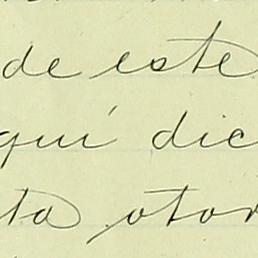 de este
quí dic
ta otor